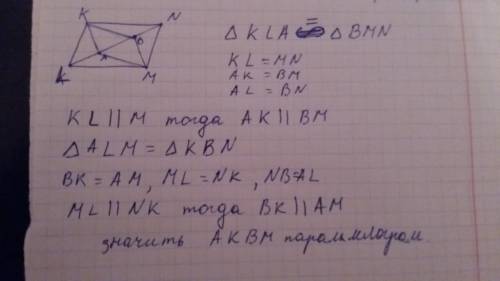 K N
△KLA = △BMN
B
A
L M
KL=MN
AK=BM
AL=BN
KL || M тогда AK || BM
△ALM = △KBN
BK=AM, ML=NK, NB=AL
ML || NK тогда BK || AM
значить AKBM паралмлограм.